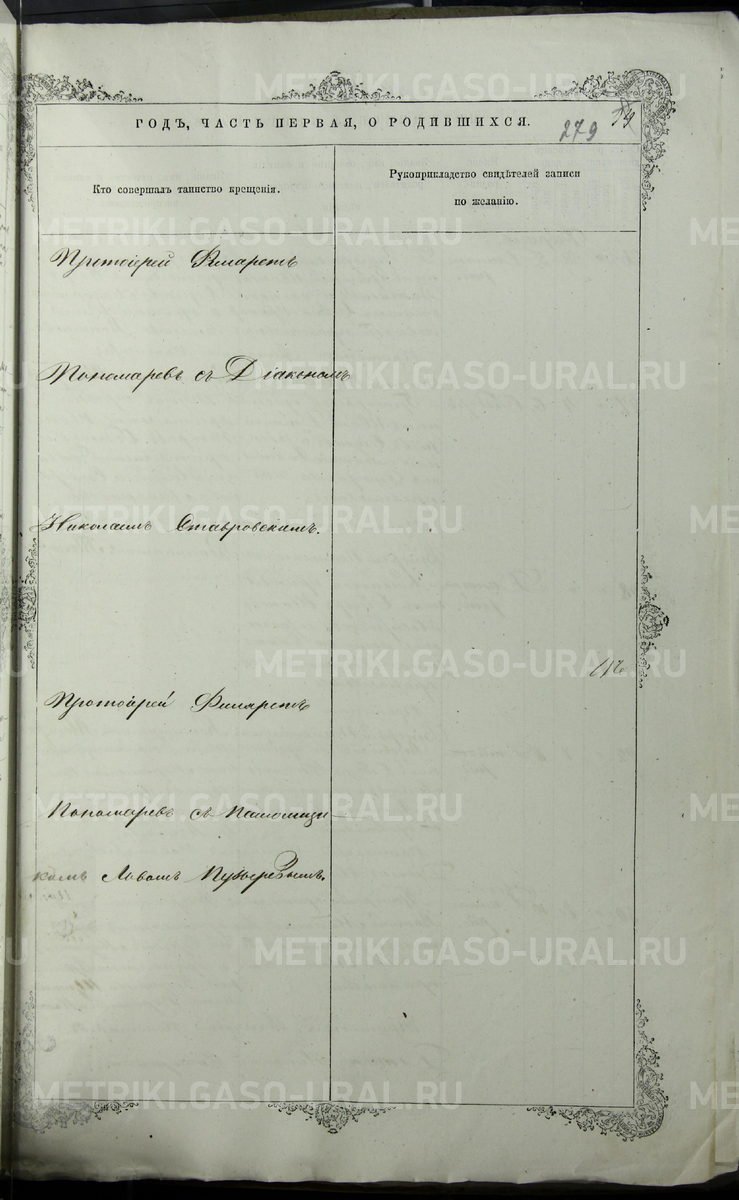 ГОДЪ, ЧАСТЬ ПЕРВАЯ, О РОДИВШИХСЯ.
279
Кто совершалъ таинство крещенія.
Рукоприкладство свидѣтелей записи
по желанію.
Протоіерей Филаретъ
Пономаревъ съ Діакономъ
Николаемъ Ставровскимъ.
Протоіерей Филаретъ
Пономаревъ съ
комъ Львомъ
METRIKI.GASO-URAL.RU